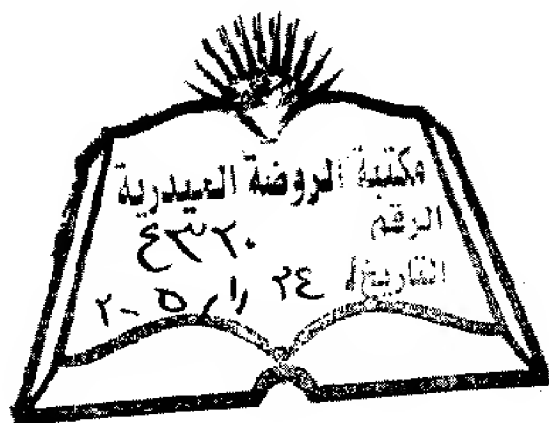 مكتبة الروضة الحيدرية
الرقم ٤٣٢٠
التاريخ ٢٤ /١/ ٢٠٠٥